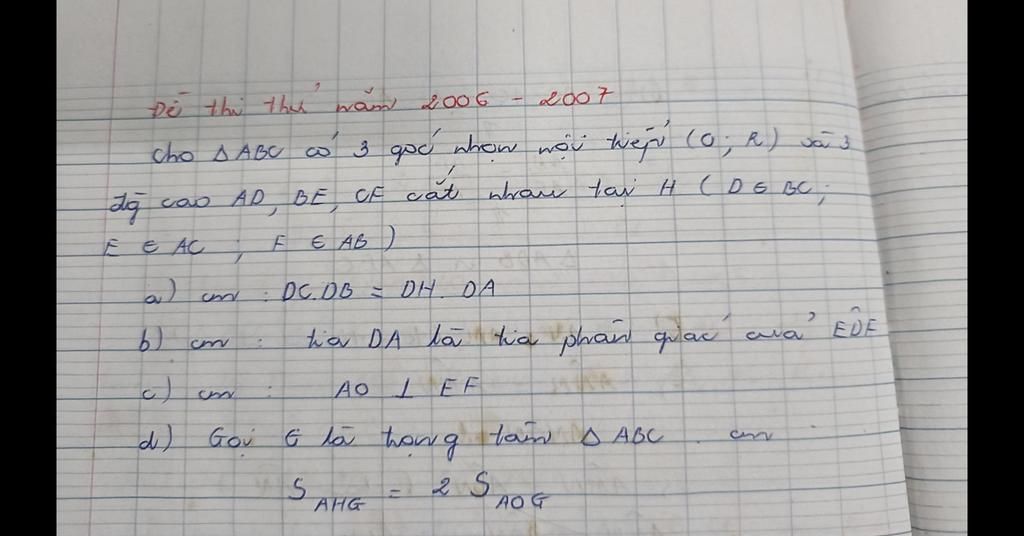 Đề thi thử năm 2006 - 2007
cho △ABC có 3 góc nhọn nội tiếp (O; R) và 3
đg cao AD, BE, CF cắt nhau tại H (D ∈ BC;
E ∈ AC ; F ∈ AB)
a) cm : DC.DB = DH. DA
b) cm : tia DA là tia phân giác của EDF
c) cm : AO ⊥ EF
d) Gọi G là trọng tâm △ ABC. cm
S_AHG = 2 S_AOG